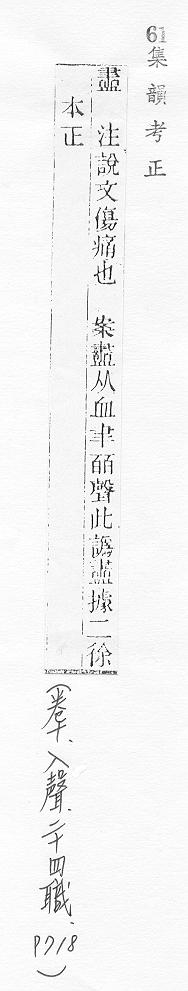 61集韻考正
衋 注說文傷痛也 案衋从血聿皕聲此譌據二徐
本正
(卷十、入聲、二十四職、P718)